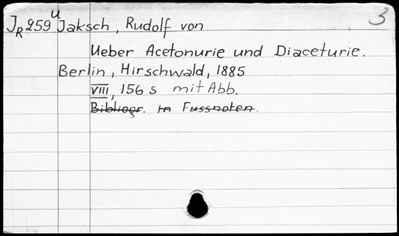 JR 259 u Jaksch, Rudolf von 3
Ueber Acetonurie und Diaceturie.
Berlin, Hirschwald, 1885
VIII, 156 s mit Abb.
Bibliogr. in Fussnoten.